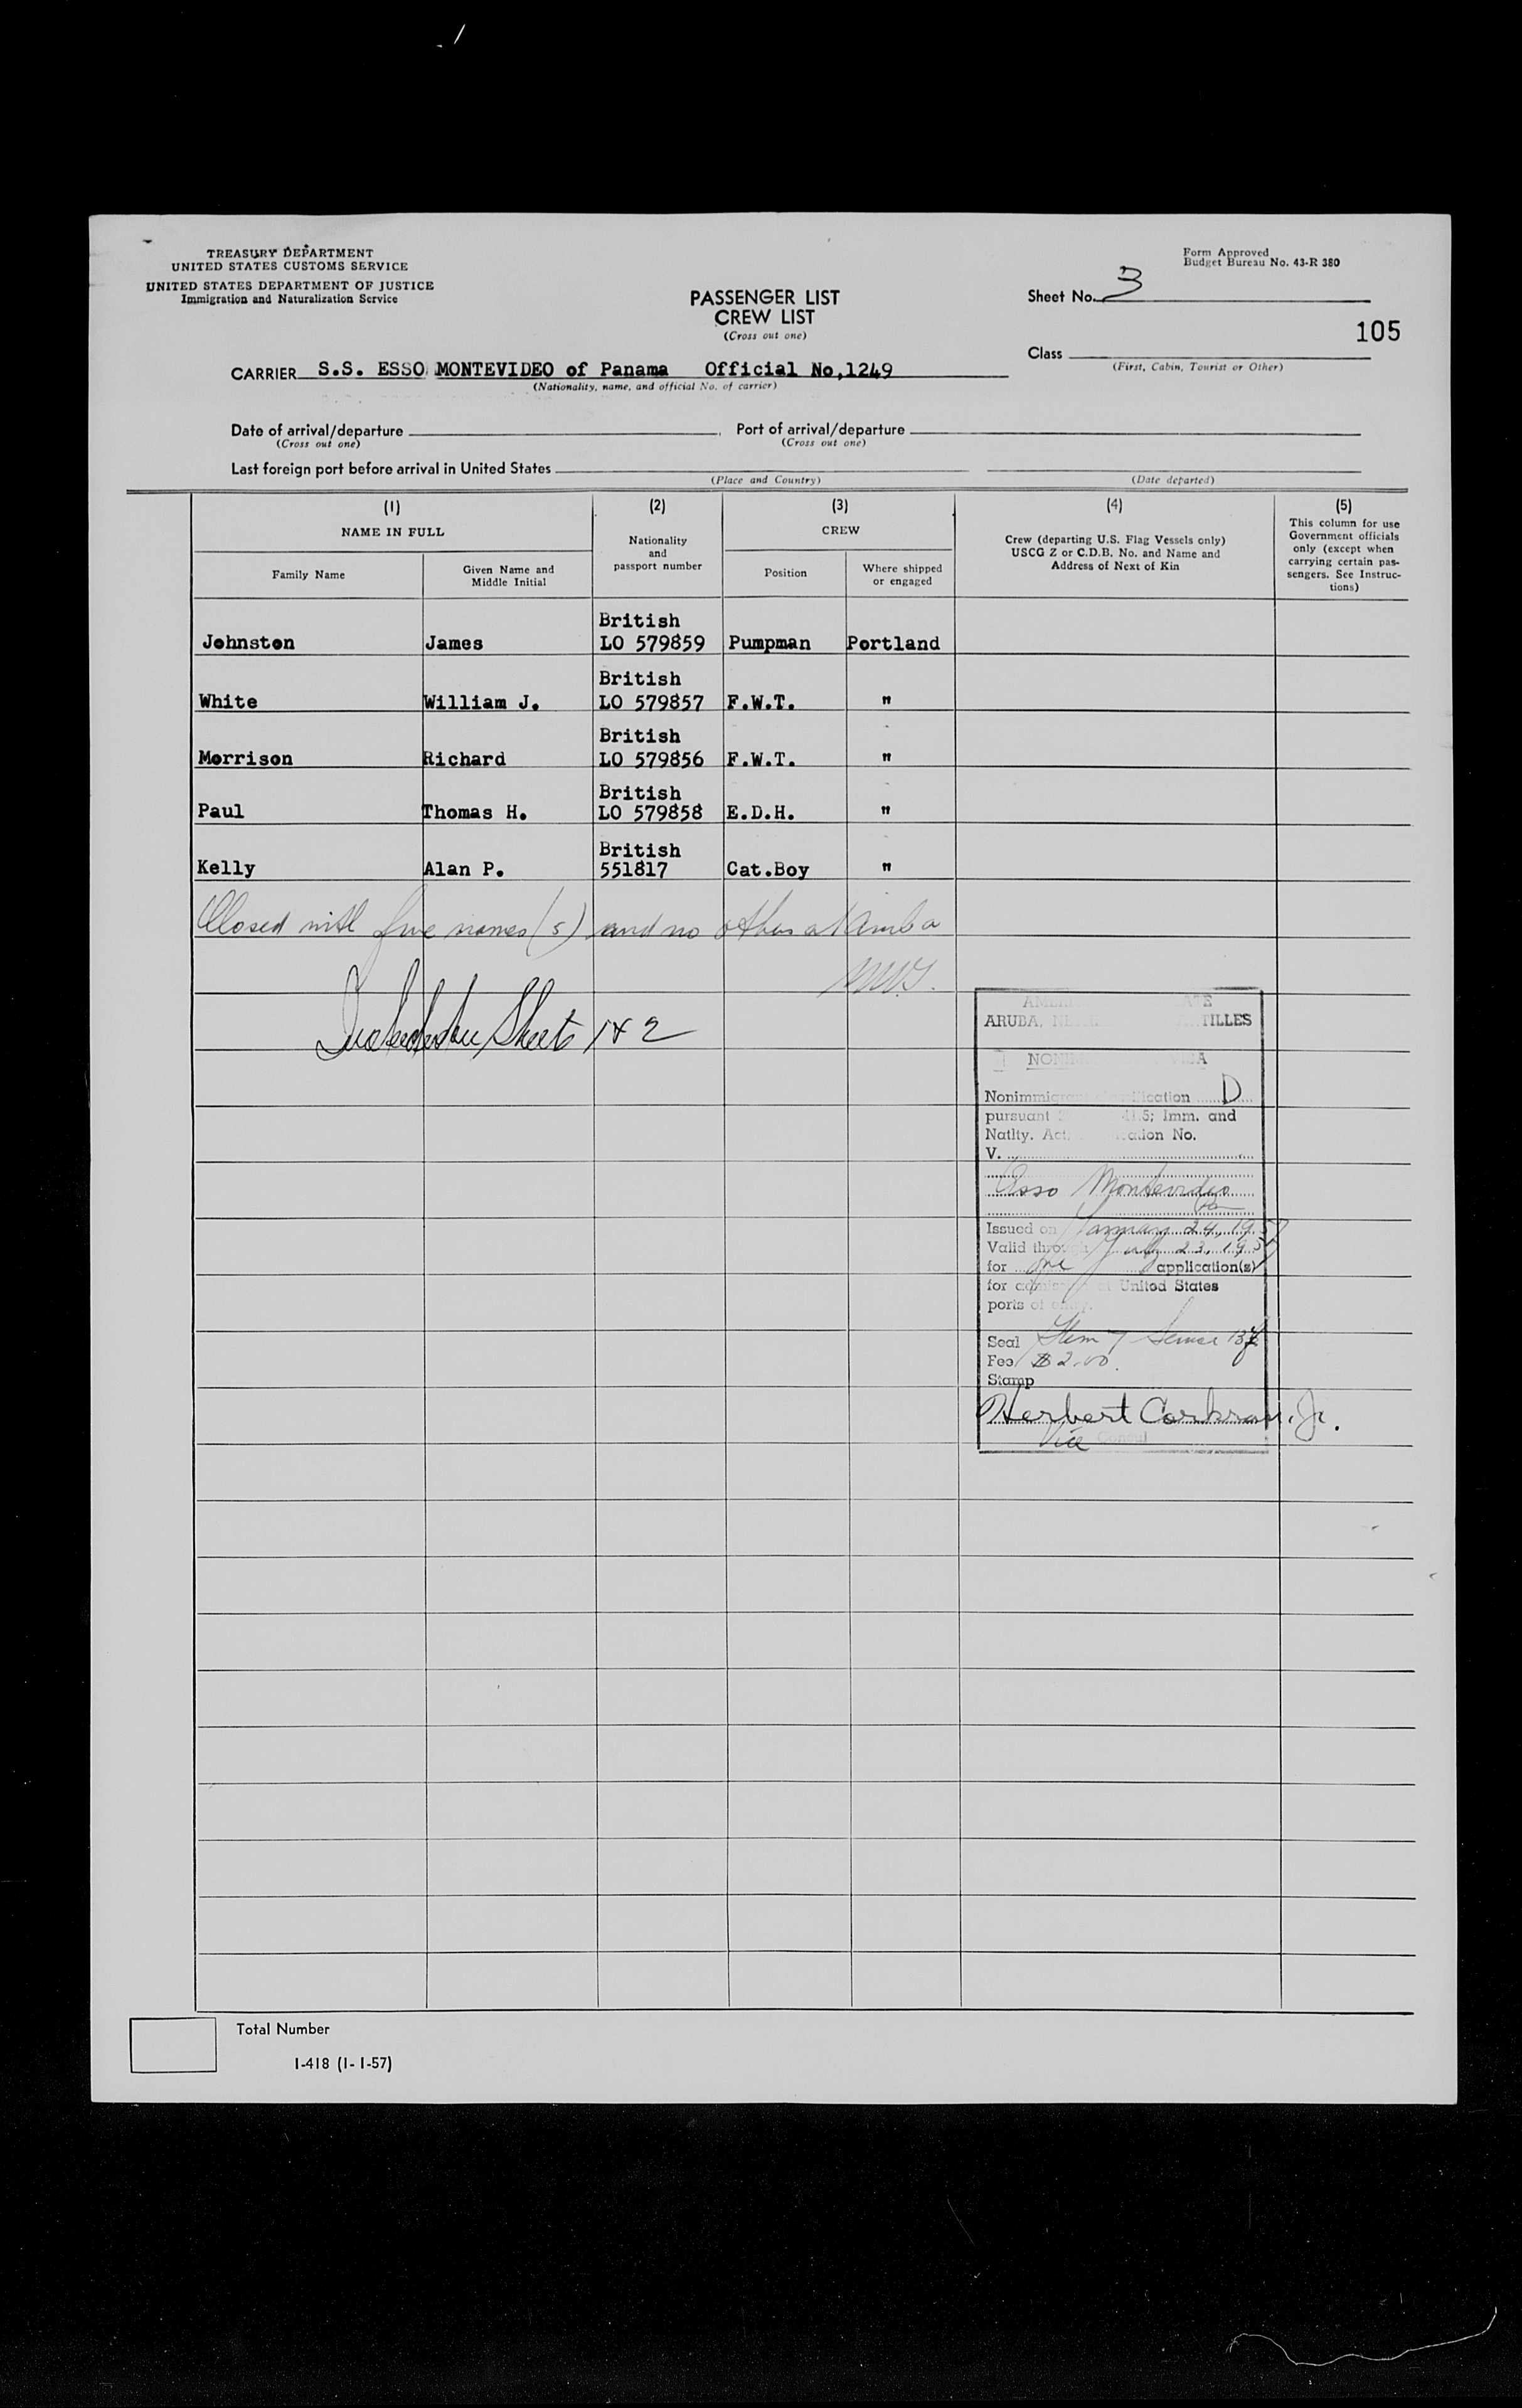 TREASURY DEPARTMENT
UNITED STATES CUSTOMS SERVICE
UNITED STATES DEPARTMENT OF JUSTICE
Immigration and Naturalization Service
Form Approved
Budget Bureau No. 43-R 380
PASSENGER LIST
CREW LIST
(Cross out one)
Sheet No. 3
105
Class
(First, Cabin, Tourist or Other)
CARRIER S.S. ESSO MONTEVIDEO of Panama Official No,1249
(Nationality, name, and official No. of carrier)
Date of arrival/departure , Port of arrival/departure
(Cross out one) (Cross out one)
Last foreign port before arrival in United States
(Place and Country) (Date departed)
(1) (2) (3) (4) (5)
NAME IN FULL
Family Name
Given Name and
Middle Initial
Nationality
and
passport number
CREW
Position
Where shipped
or engaged
Crew (departing U.S. Flag Vessels only)
USCG Z or C.D.B. No. and Name and
Address of Next of Kin
This column for use
Government officials
only (except when
carrying certain pas-
sengers. See Instruc-
tions)
British
Johnston James LO 579859 Pumpman Portland
British
White William J. LO 579857 F.W.T. "
British
Morrison Richard LO 579856 F.W.T. "
British
Paul Thomas H. LO 579858 E.D.H. "
British
Kelly Alan P. 551817 Cat.Boy "
Closed with five names (s) and no others at Aruba
Sheets 1 & 2
ARUBA, TILLES
Nonimmigrant classification D
pursuant 41.5; Imm. and
Natlty. Act, cation No.
V.
Esso Montevideo
Issued on January 24, 195
Valid through July 23, 195
for one application(s)
for admission at United States
ports of entry.
Seal Item 7
Fee $2.00.
Stamp
Herbert Corkran, Jr.
Vice Consul
Total Number
I-418 (1-1-57)